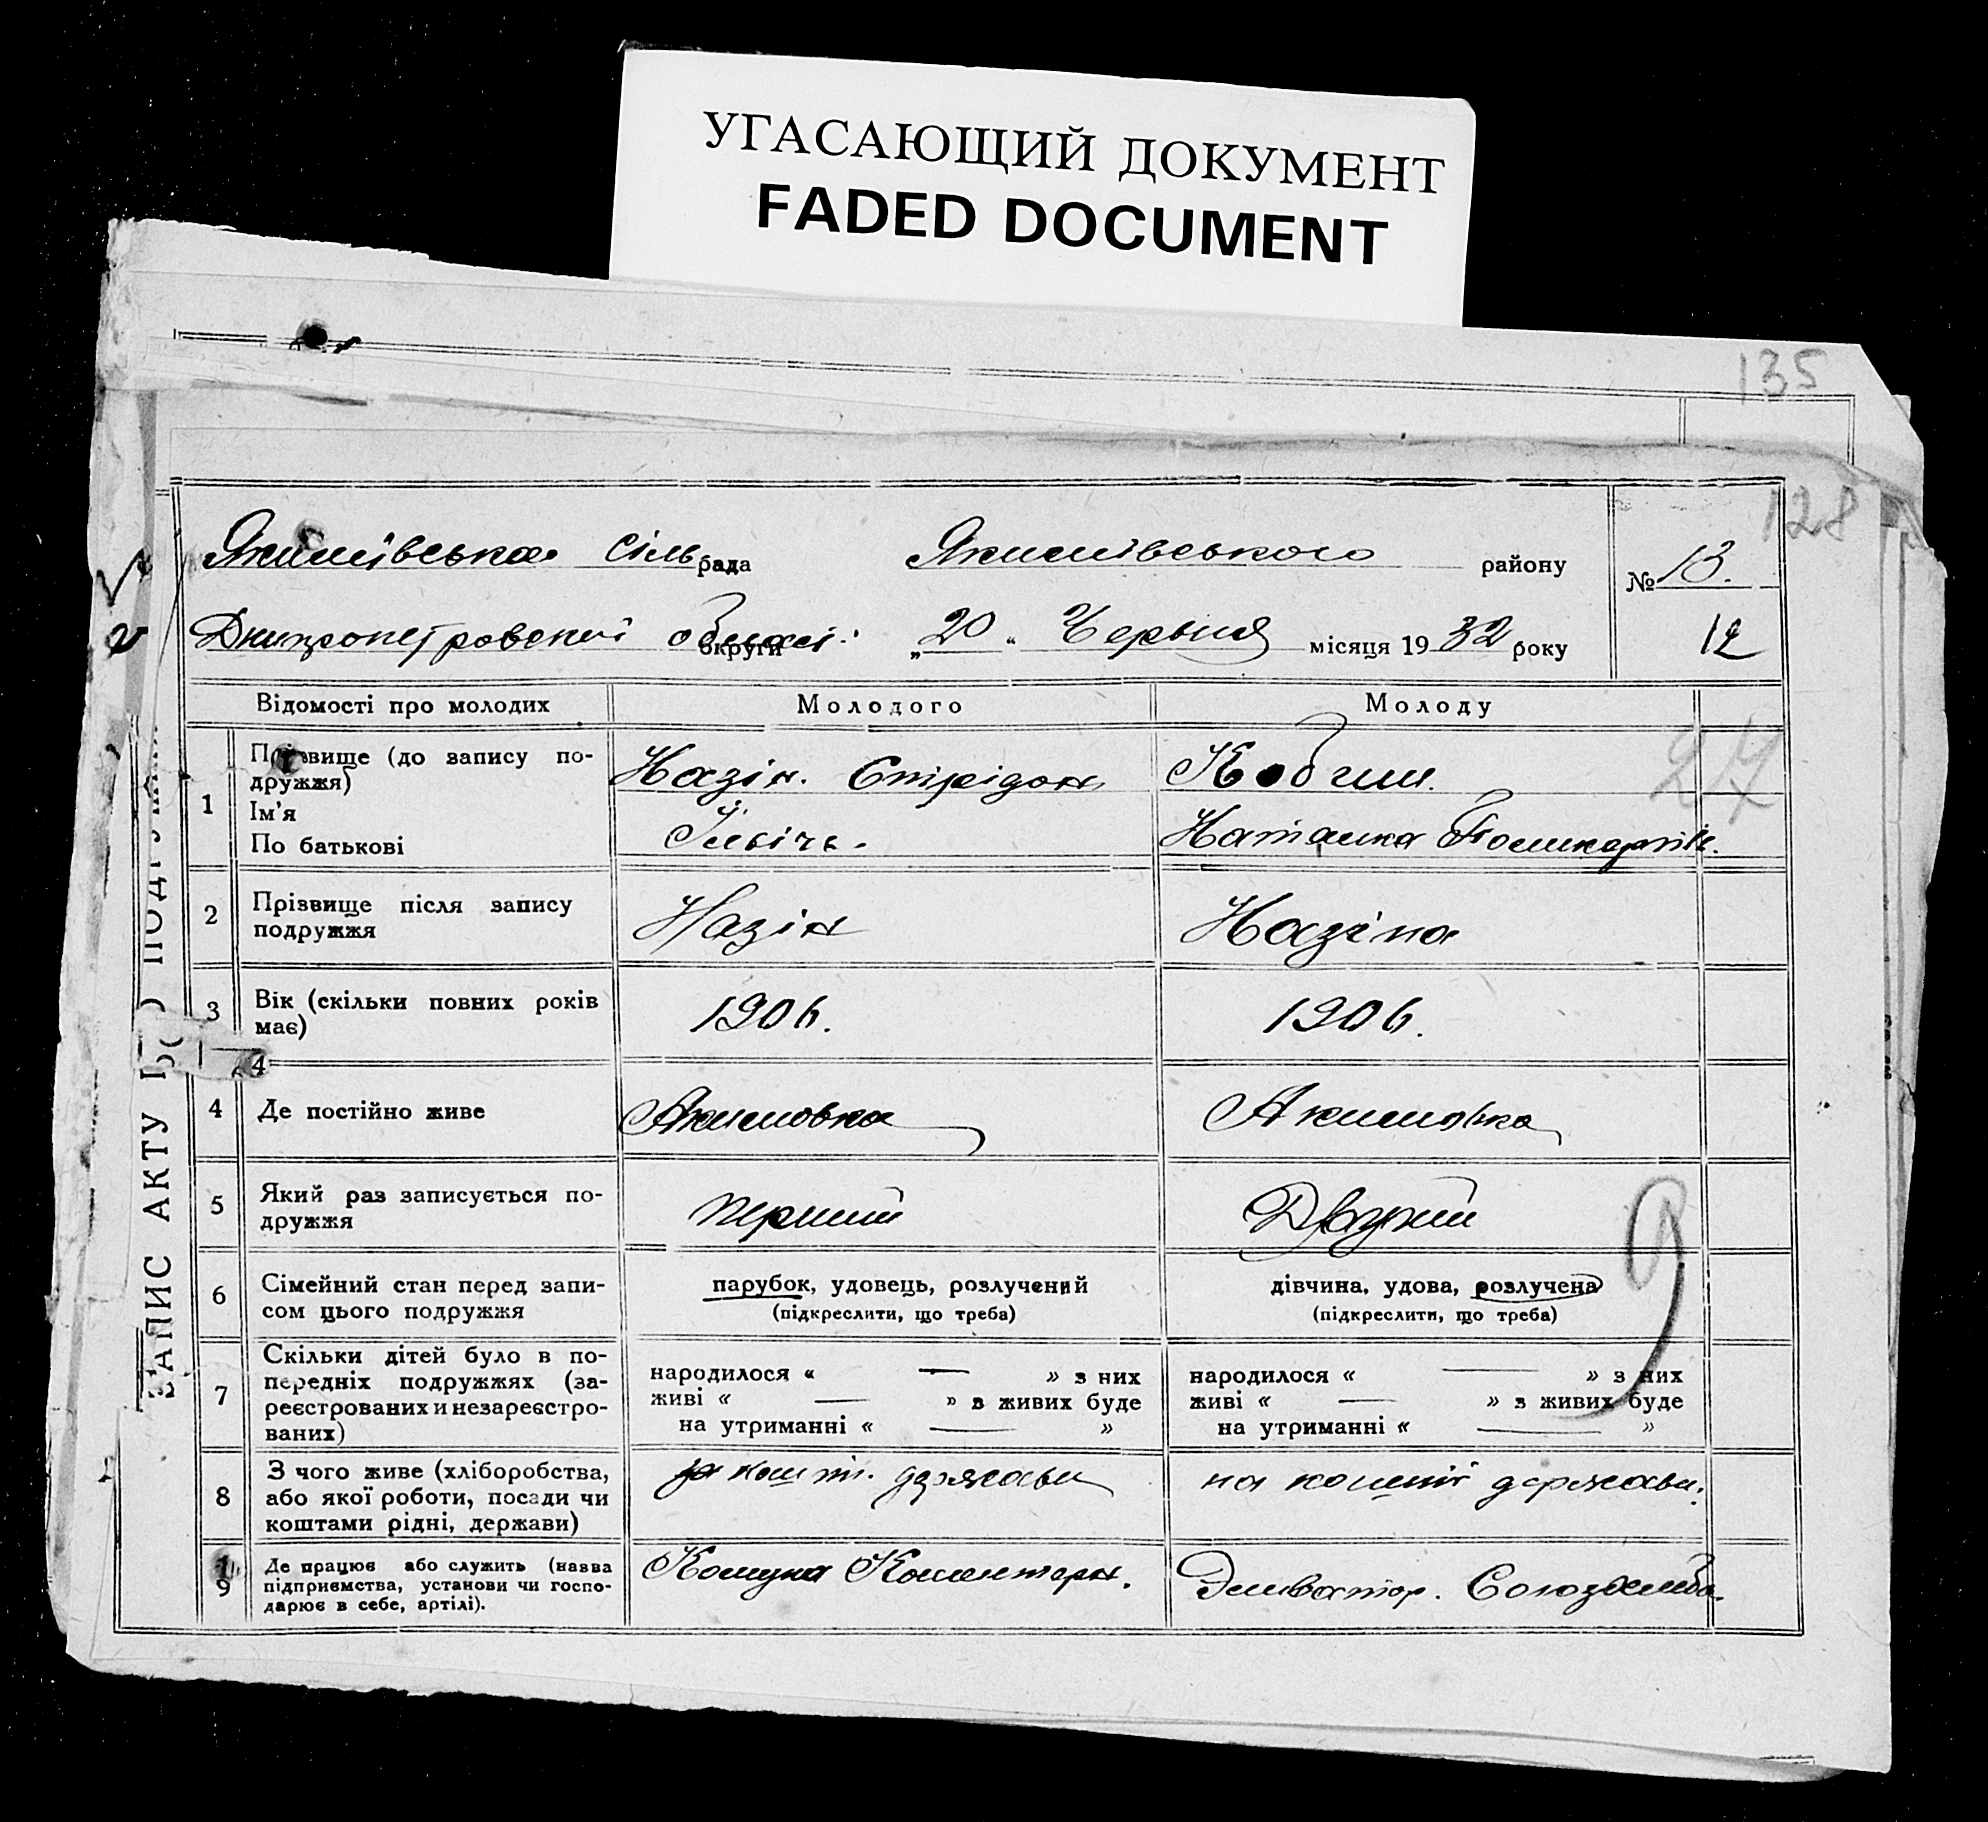 УГАСАЮЩИЙ ДОКУМЕНТ
FADED DOCUMENT
135
128
Якимівська сільрада Якимівського району № 13.
Днипропетровской області округи „20" Червня місяця 1932 року 12
ЗАПИС АКТУ ПРО ПОДРУЖЖЯ
Відомості про молодих Молодого Молоду
27
1 Прізвище (до запису подружжя) Назін. Спірідон Кобчин.
Ім'я
По батькові Ільічь. Наталка Поликарпів.
2 Прізвище після запису подружжя Назін Назіна
3 Вік (скільки повних років має) 1906. 1906.
4
4 Де постійно живе Акимовка Акимовка
5 Який раз записується подружжя перший Двазний
6 Сімейний стан перед записом цього подружжя парубок, удовець, розлучений дівчина, удова, розлучена
(підкреслити, що треба) (підкреслити, що треба)
7 Скільки дітей було в попередніх подружжях (зареєстрованих и незареєстрованих) народилося « — » з них народилося « — » з них
живі « — » з живих буде живі « — » з живих буде
на утриманні « — » на утриманні « — »
8 З чого живе (хліборобства, або якої роботи, посади чи коштами рідні, держави) на кошт. держави на кошті держави.
9 Де працює або служить (назва підприємства, установи чи господарює в себе, артілі). Комуна Коминтерн. Элеватор. Союзхлеба.